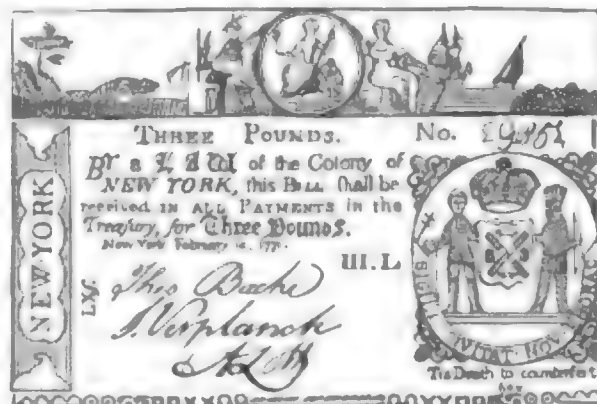 THREE POUNDS. No.
BY a LAW of the Colony of
NEW YORK, this BILL shall be
received IN ALL PAYMENTS in the
Treasury, for Three Pounds.
New York February
III.L
NEW YORK
Theo Bache
Verplanck
'Tis Death to counterfeit